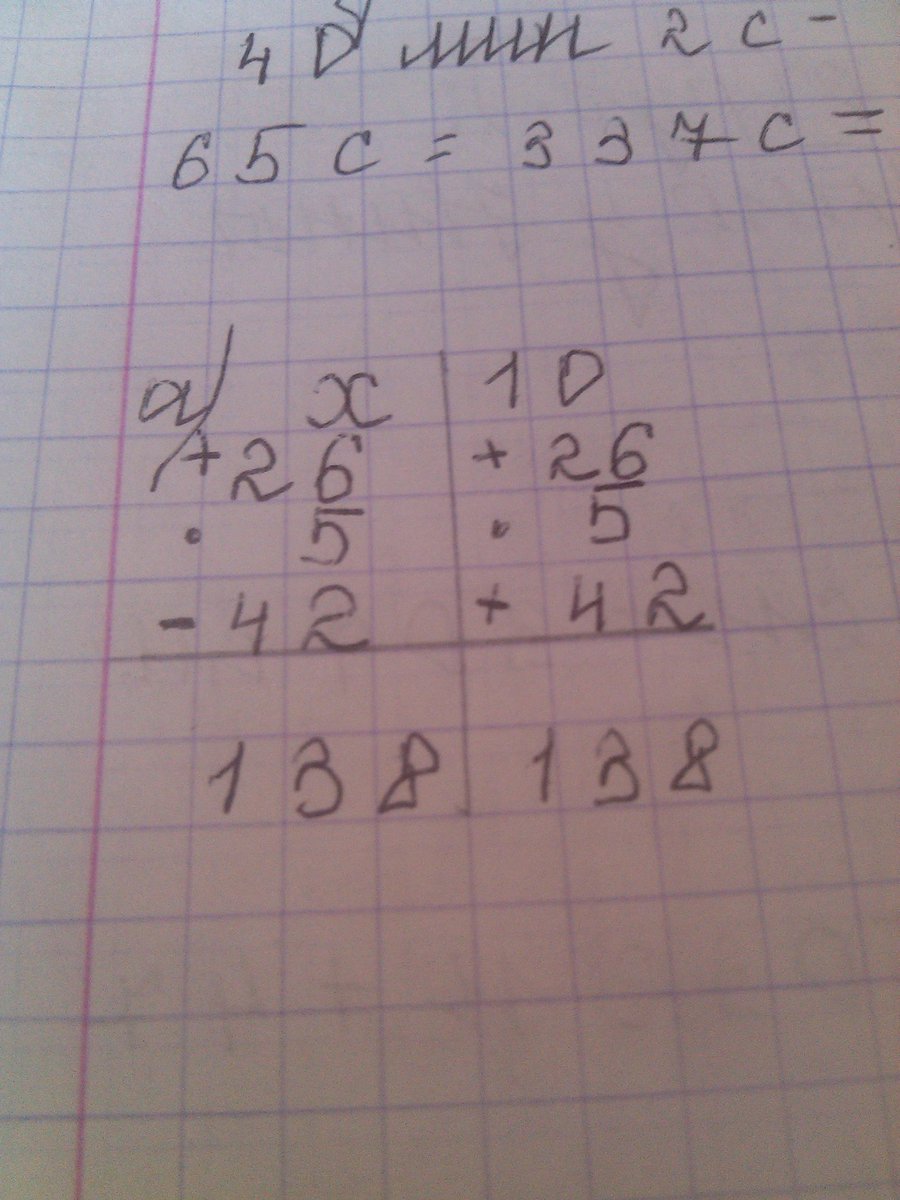 40 мин 2 с -
65 с = 337 с =
а) x | 10
+ 26 | + 26
· 5 | · 5
- 42 | + 42
138 | 138